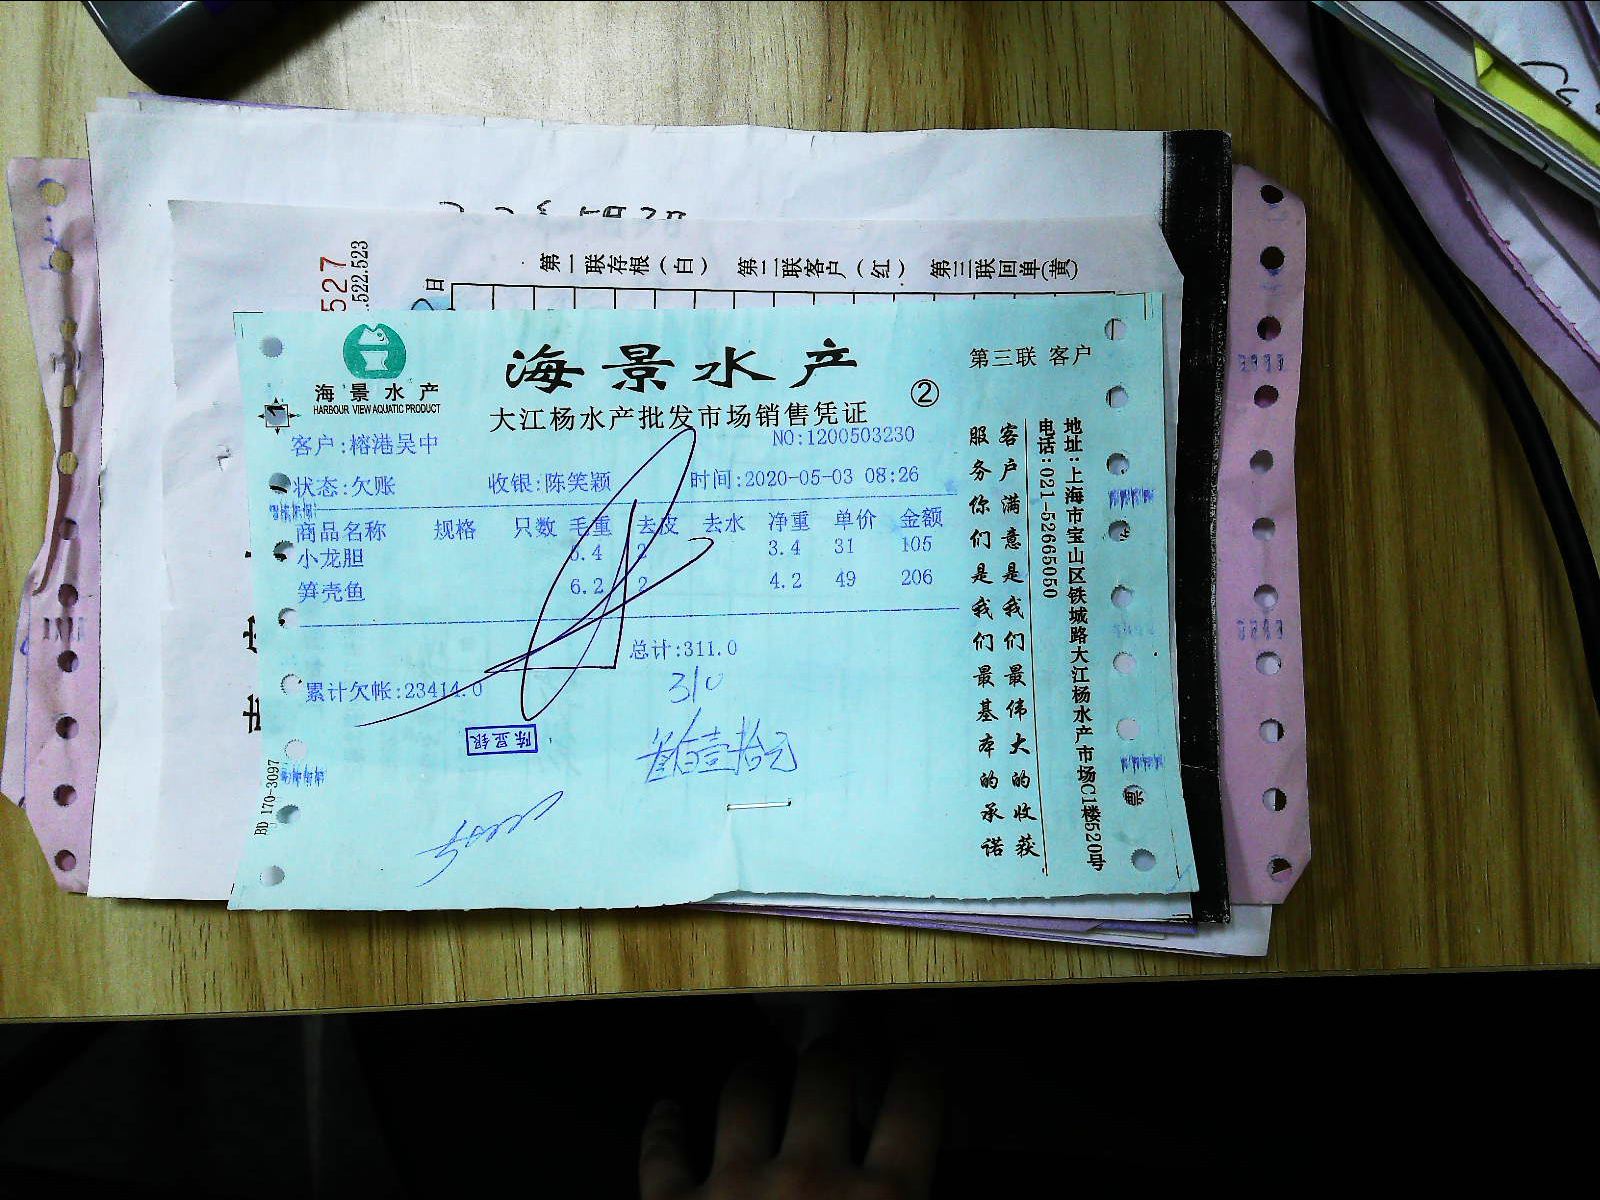 527
.522.523
日
第一联存根(白) 第二联客户(红) 第三联回单(黄)
海景水产
HARBOUR VIEW AQUATIC PRODUCT
海景水产
第三联 客户
大江杨水产批发市场销售凭证
②
1
客户:榕港吴中
NO:1200503230
状态:欠账 收银:陈笑颖 时间:2020-05-03 08:26
商品名称 规格 只数 毛重 去皮 去水 净重 单价 金额
小龙胆 5.4 2 3.4 31 105
笋壳鱼 6.2 2 4.2 49 206
总计:311.0
累计欠帐:23414.0
310
陈显银
叁佰壹拾元
BD 170-3097
客户满意是我们最伟大的收获
服务你们是我们最基本的承诺
地址:上海市宝山区铁城路大江杨水产市场C1楼520号
电话:021-52665050